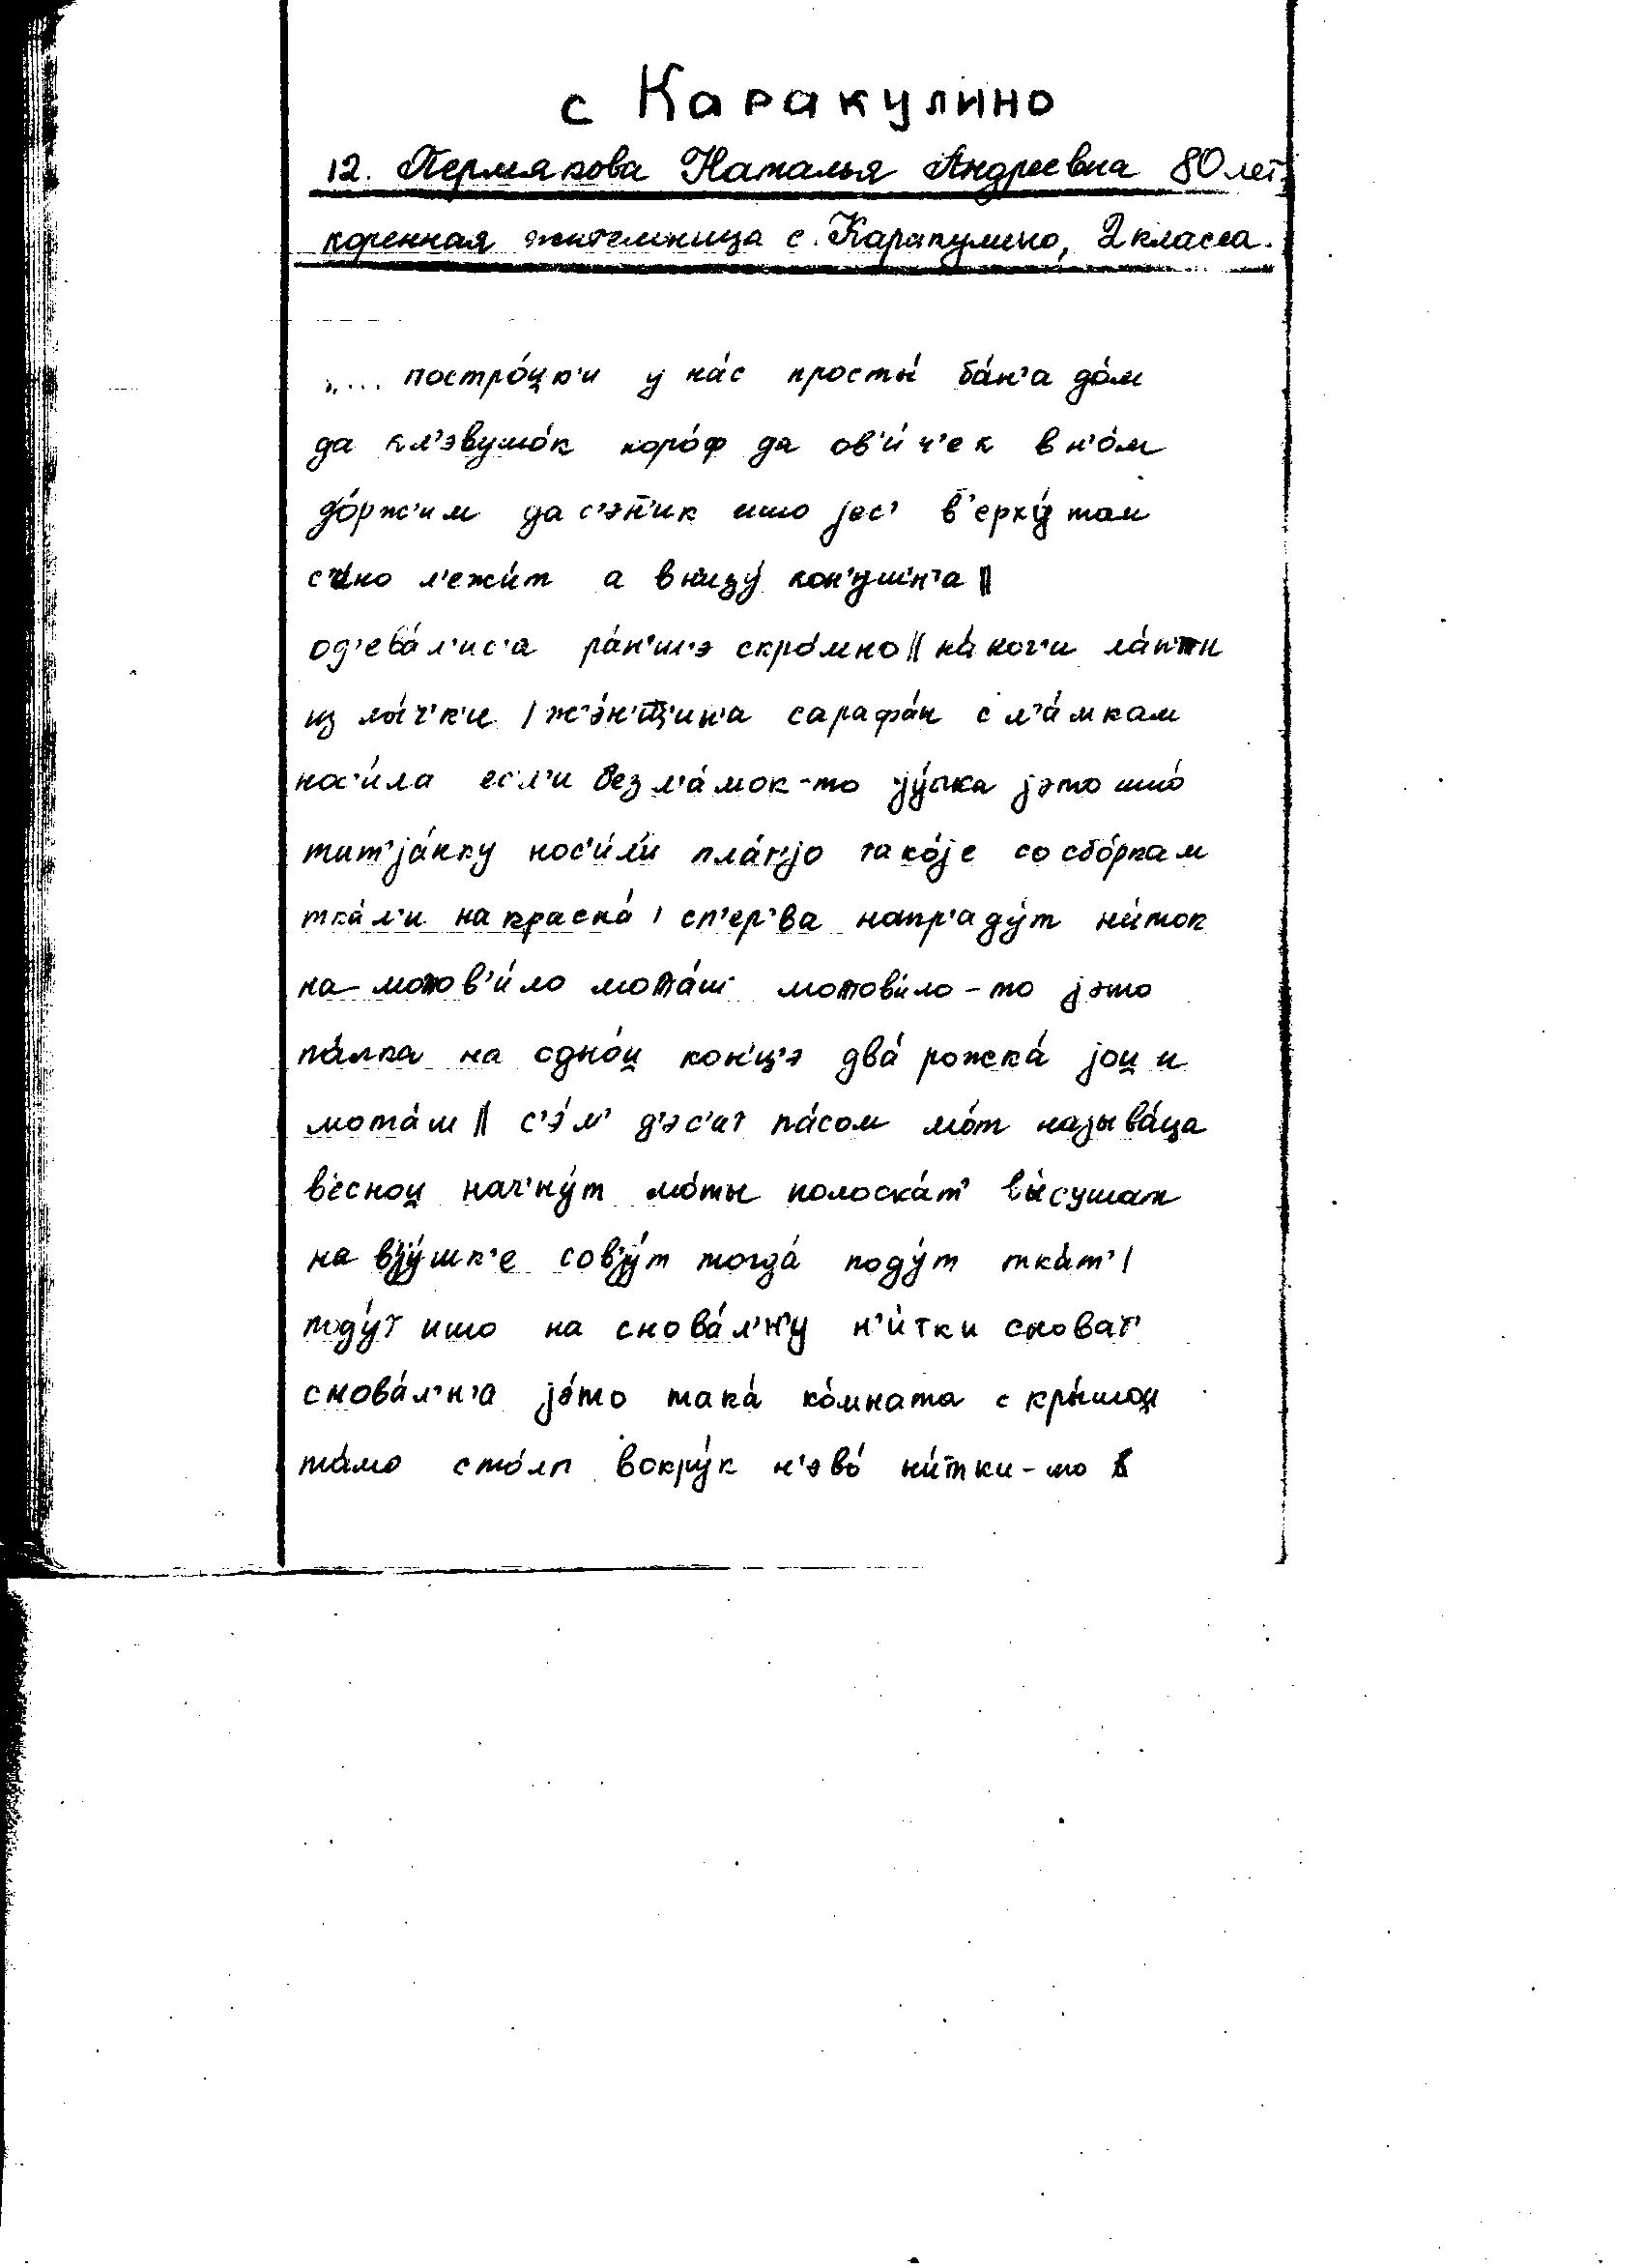 с Каракулино
12. Пермякова Наталья Андреевна 80 лет,
коренная жительница с. Каракулино, 2 класса.
„... постро́и̯к'и у на́с просты́ ба́н'а до́м
да хл'эвушо́к коро́ф да ов'и́ч'ек в н'о́м
до́рж'им да с'э́н'ик ишо jес' в'ерху́ там
с'и́но л'ежи́т а внизу́ кон'у́ш'н'а ||
од'ева́л'ис'а ра́н'ш'э скро́мно || на́ ног'и ла́пти
из лы́ч'к'и | ж'э́н'щ'ин'а сарафа́н с л'а́мкам
нос'и́ла есл'и без л'а́мок-то jу́пка jэто што́
тат'jа́нку нос'и́ли пла́т'jо тако́jе со сбо́ркам
тка́л'и на кросна́ | сп'ер'ва напр'аду́т ни́ток
на мотов'и́ло мота́ш мотови́ло-то jэто
па́лка на одно́и̯ кон'ц'э два́ рожка́ jои̯ и
мота́ш || с'э́м' д'эс'ат па́сом мо́т называ́ца
в'есной̯ нач'ну́т мо́ты полоска́т' вы́сушат
на вjу́шк'е совjу́т тогда́ поду́т тка́т' |
поду́т ишо на снова́л'н'у н'и́тки сноват'
снова́л'н'а jэ́то така́ ко́мната с кры́шои̯
та́мо сто́лп вокру́к н'эво́ ни́тки-то